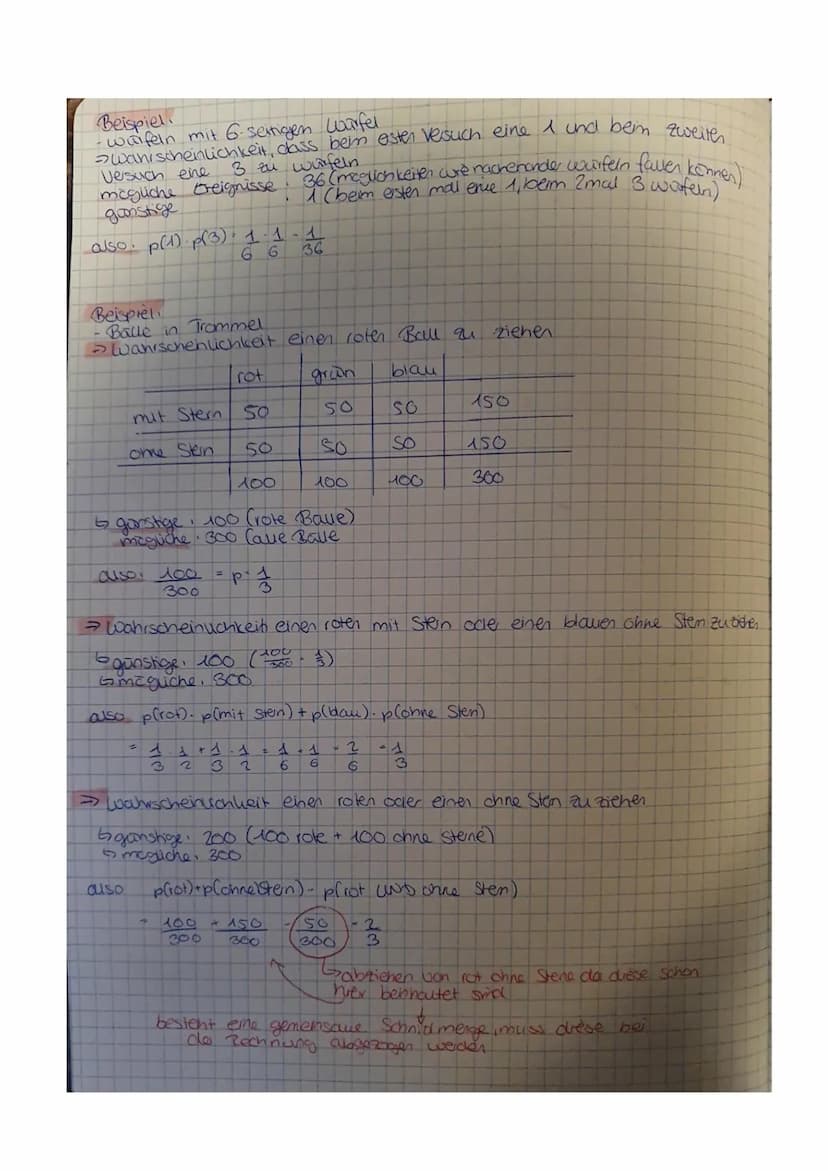 Beispiel:
- würfeln mit 6-seitigen Würfel
⇒ Wahrscheinlichkeit, dass beim ersten Versuch eine 1 und beim zweiten
Versuch eine 3 zu würfeln
mögliche Ereignisse: 36 (möglichkeiten wie nacheinander würfeln fallen können)
günstige : 1 (beim ersten mal eine 1, beim 2mal 3 würfeln)
also: p(1) · p(3) = 1/6 · 1/6 = 1/36
Beispiel:
- Bälle in Trommel
⇒ Wahrscheinlichkeit einen roten Ball zu ziehen
rot grün blau
mit Stern 50 50 50 150
ohne Stern 50 50 50 150
100 100 100 300
↳ günstige: 100 (rote Bälle)
mögliche: 300 (alle Bälle
also: 100/300 = p = 1/3
⇒ Wahrscheinlichkeit einen roten mit Stern oder einen blauen ohne Stern zu ziehen
↳ günstige: 100 (100/300 = 1/3)
↳ mögliche: 300
also p(rot) · p(mit Stern) + p(blau) · p(ohne Stern)
= 1/3 · 1/2 + 1/3 · 1/2 = 1/6 + 1/6 = 2/6 = 1/3
⇒ Wahrscheinlichkeit einen roten oder einen ohne Stern zu ziehen
↳ günstige: 200 (100 rote + 100 ohne Sterne)
↳ mögliche: 300
also p(rot) + p(ohne Stern) - p(rot UND ohne Stern)
= 100/300 + 150/300 - 50/300 = 2/3
↳ abziehen von rot ohne Sterne da diese schon
hier beinhaltet sind
besteht eine gemeinsame Schnittmenge, muss diese bei
der Rechnung abgezogen werden